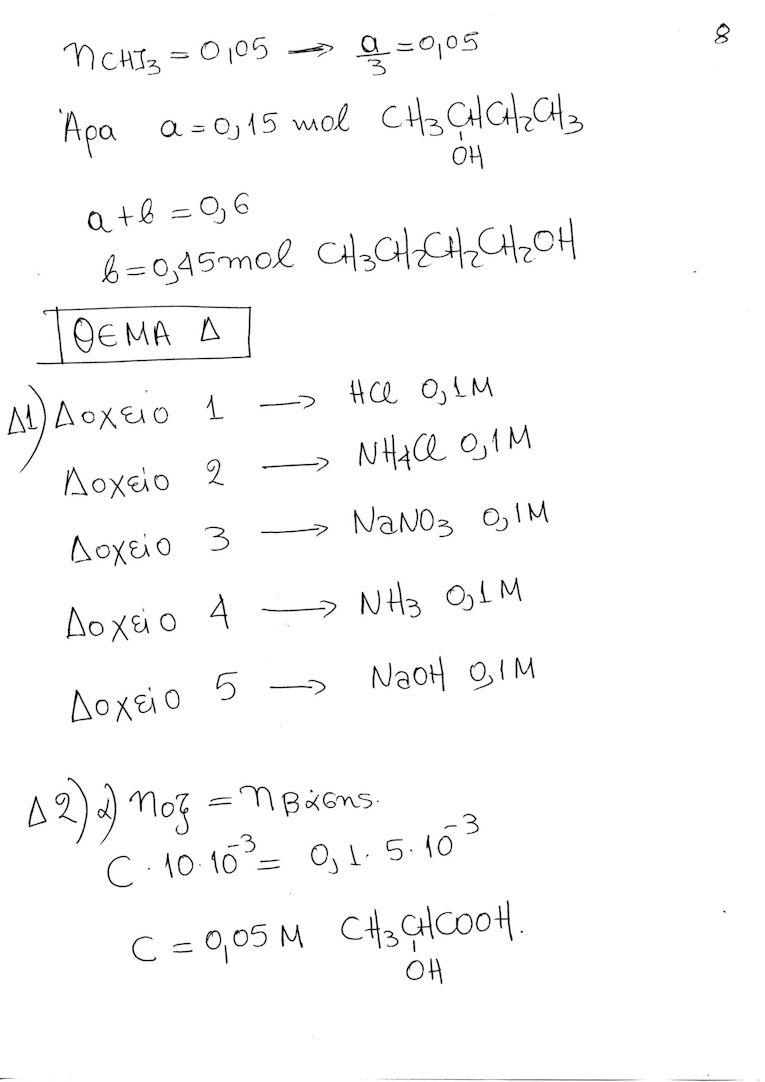 8
nCHI3 = 0,05 → a/3 = 0,05
Άρα a = 0,15 mol CH3CHCH2CH3
OH
a + b = 0,6
b = 0,45 mol CH3CH2CH2CH2OH
ΘΕΜΑ Δ
Δ1) Δοχείο 1 → HCl 0,1M
Δοχείο 2 → NH4Cl 0,1M
Δοχείο 3 → NaNO3 0,1M
Δοχείο 4 → NH3 0,1M
Δοχείο 5 → NaOH 0,1M
Δ2) α) nοξ = nβάσης.
C · 10 · 10⁻³ = 0,1 · 5 · 10⁻³
C = 0,05 M CH3CHCOOH.
OH